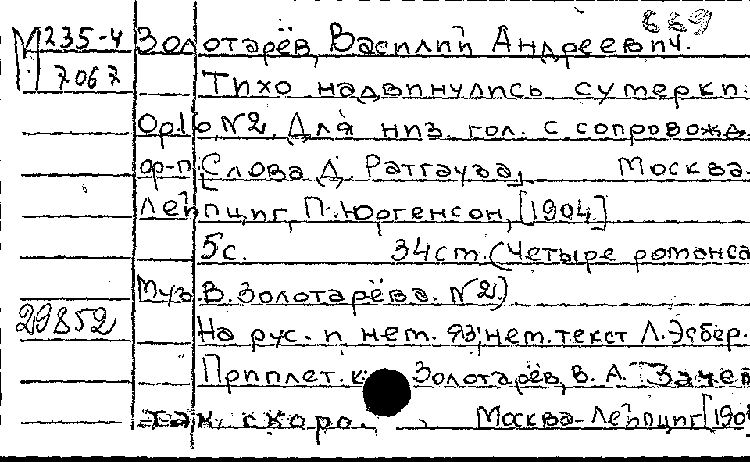 669
М 235-4 Золотарёв, Василий Андреевич.
7067 Тихо надвинулись сумерки.
Op.16, №2. Для низ. гол. с сопровожд.
ф-п. [Слова Д. Ратгауза], Москва-
Лейпциг, П. Юргенсон, [1904]
5с. 34cm. (Четыре романса
Муз. В. Золотарёва. №2)
29852
На рус. и нем. яз; нем. текст Л. Эсбер.
Приплет. к Золотарёв, В. А. Зачем
так скоро. Москва-Лейпциг [190